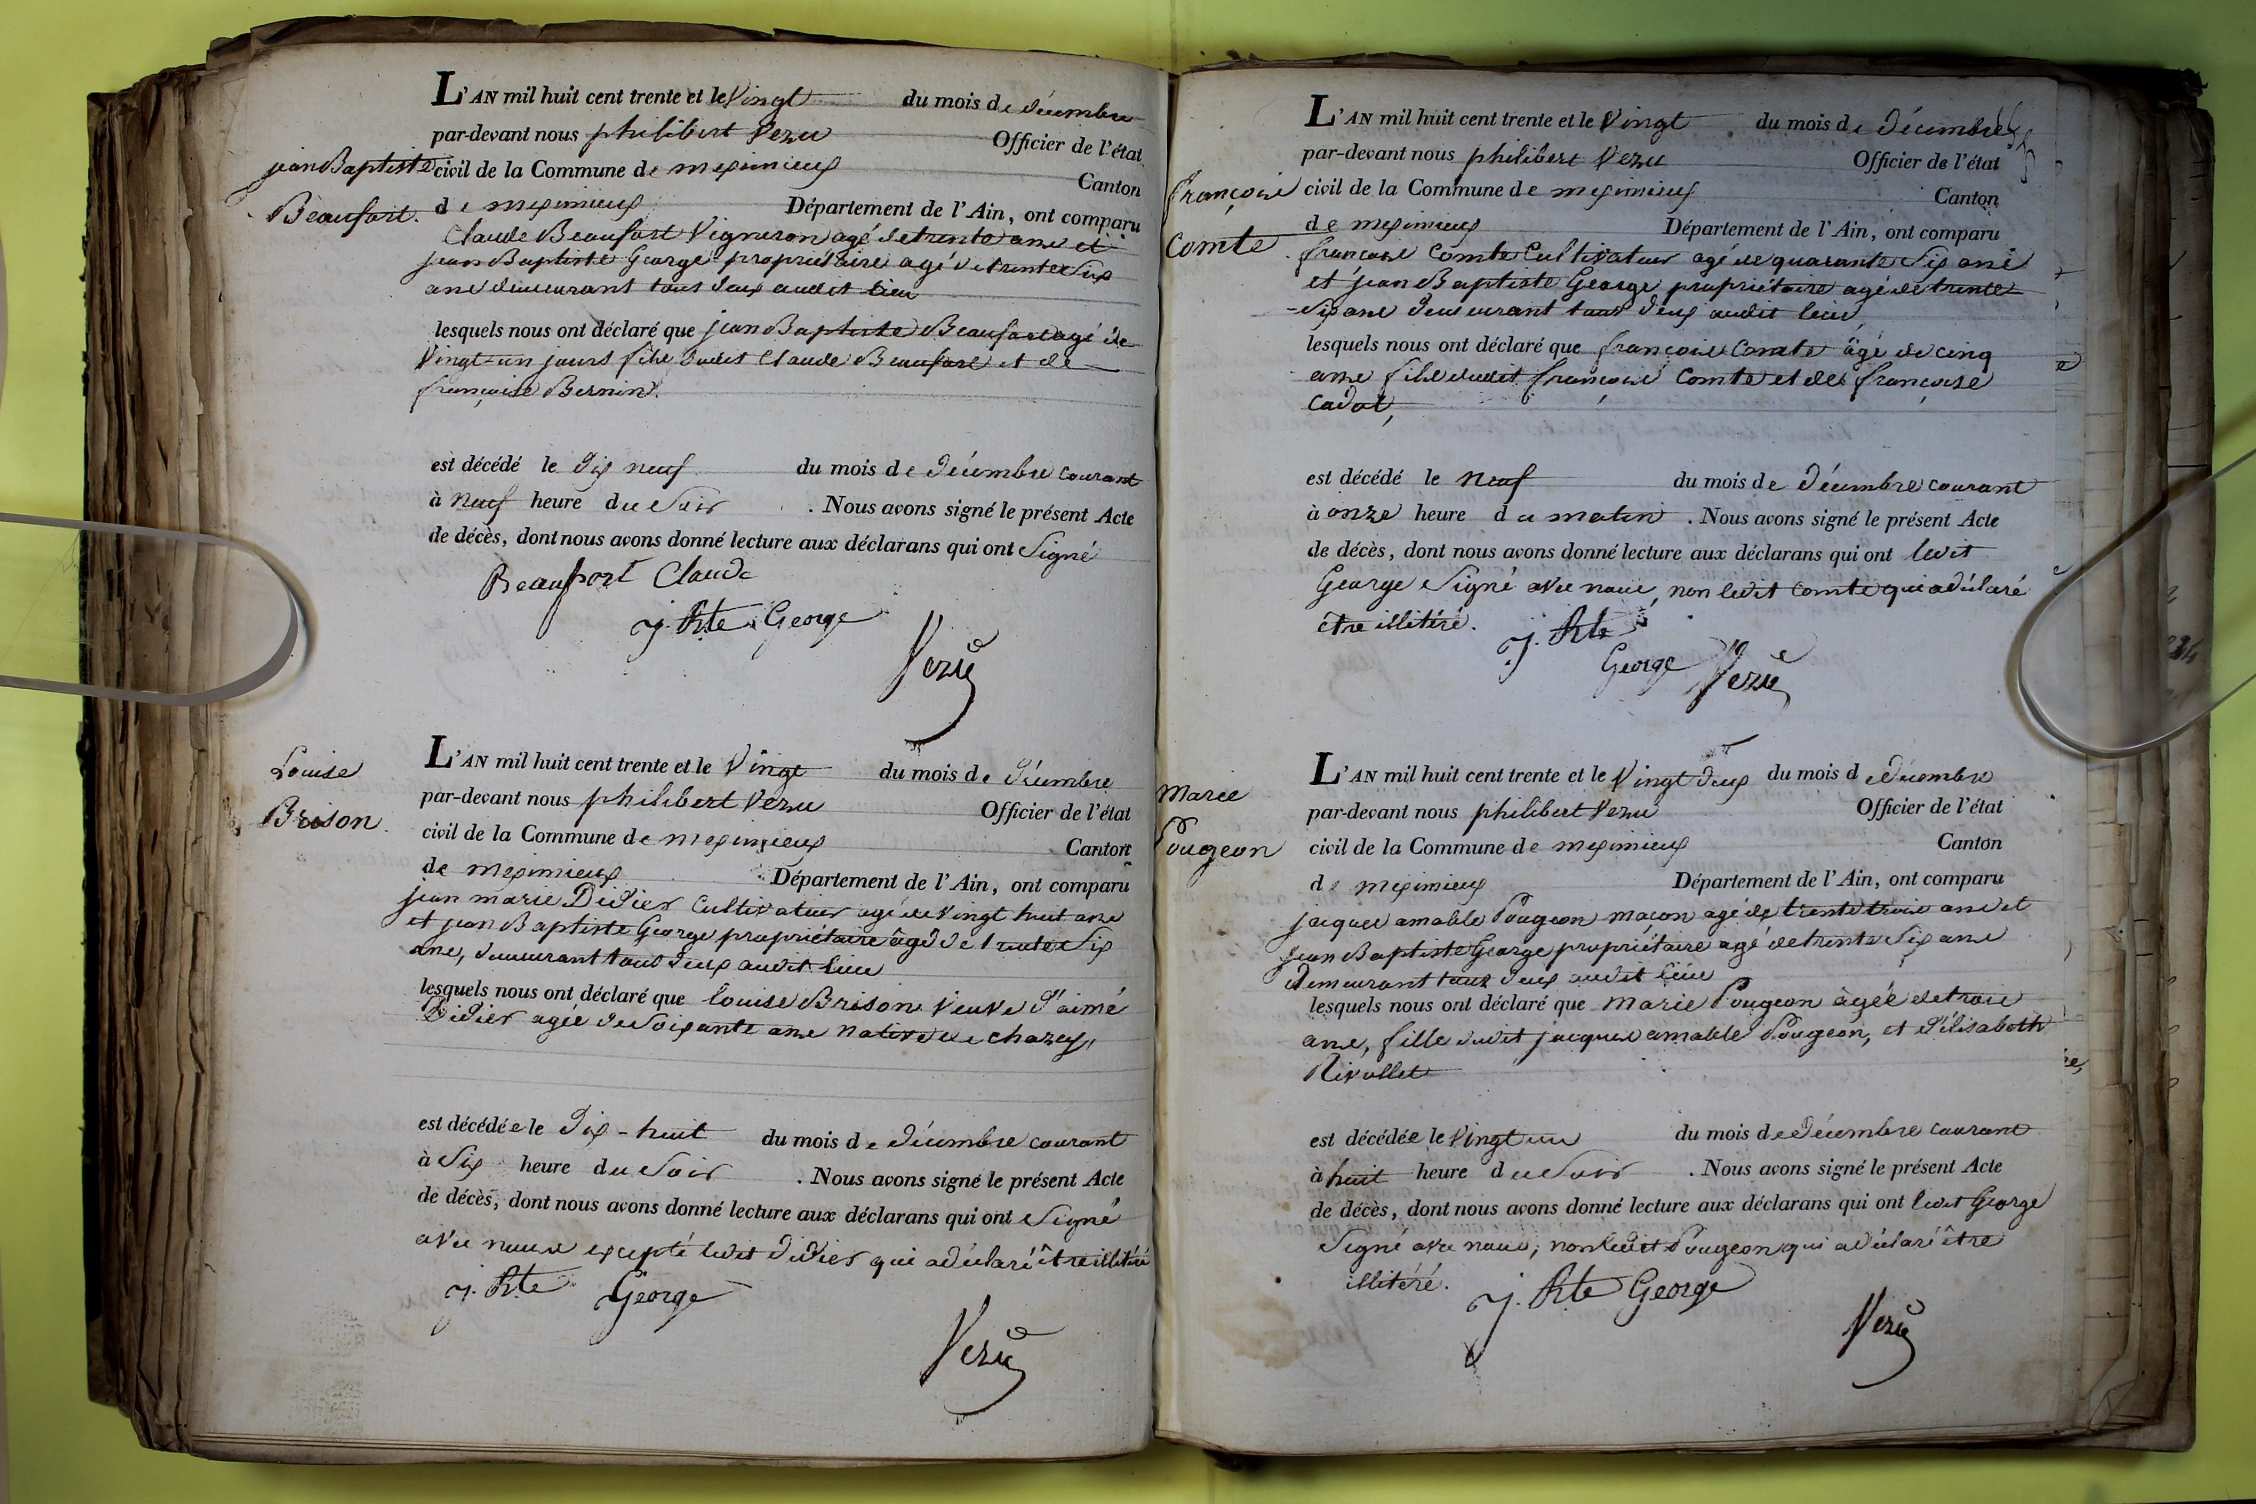 L'AN mil huit cent trente et le Vingt du mois de décembre
par-devant nous philibert Vezu Officier de l'état
jean Baptiste civil de la Commune de meximieux Canton
Beaufort. de meximieux Département de l'Ain, ont comparu
Claude Beaufort Vigneron agé de trente ans et
jean Baptiste George propriétaire agé de trente six
ans demeurant tous deux audit lieu
lesquels nous ont déclaré que jean Baptiste Beaufort agé de
Vingt-un jours fils dudit Claude Beaufort et de
françoise Bernin.
est décédé le dix neuf du mois de décembre courant
à neuf heure du soir . Nous avons signé le présent Acte
de décès, dont nous avons donné lecture aux déclarans qui ont signé
Beaufort Claude
j. Bte George
Vezu
Louise
Brison.
L'AN mil huit cent trente et le Vingt du mois de décembre
par-devant nous philibert Vezu Officier de l'état
civil de la Commune de meximieux Canton
de meximieux Département de l'Ain, ont comparu
jean marie Didier cultivateur agé de vingt huit ans
et jean Baptiste George propriétaire âgé de trente six
ans, demeurant tous deux audit lieu
lesquels nous ont déclaré que louise Brison veuve d'aimé
Didier agée de soixante ans native de chazey,
est décédée le dix-huit du mois de décembre courant
à six heure du soir . Nous avons signé le présent Acte
de décès, dont nous avons donné lecture aux déclarans qui ont signé
avec nous excepté ledit Didier qui a déclaré être illitéré
j. Bte George
Vezu
françois
Comte
L'AN mil huit cent trente et le Vingt du mois de décembre
par-devant nous philibert Vezu Officier de l'état
civil de la Commune de meximieux Canton
de meximieux Département de l'Ain, ont comparu
françois Comte Cultivateur agé de quarante six ans
et jean Baptiste George propriétaire agé de trente
-six ans demeurant tous deux audit lieu
lesquels nous ont déclaré que françois Comte âgé de cinq
ans fils dudit françois Comte et de françoise
Cadot,
est décédé le neuf du mois de décembre courant
à onze heure du matin . Nous avons signé le présent Acte
de décès, dont nous avons donné lecture aux déclarans qui ont ledit
George signé avec nous, non ledit Comte qui a déclaré
être illitéré.
j. Bte
George Vezu
Marie
Pougeon
L'AN mil huit cent trente et le Vingt deux du mois de décembre
par-devant nous philibert Vezu Officier de l'état
civil de la Commune de meximieux Canton
de meximieux Département de l'Ain, ont comparu
jacques amable Pougeon maçon agé de trente trois ans et
jean Baptiste George propriétaire agé de trente six ans
demeurant tous deux audit lieu
lesquels nous ont déclaré que Marie Pougeon âgée de trois
ans, fille dudit jacques amable Pougeon, et d'élisabeth
Rivollet
est décédée le vingt un du mois de décembre courant
à huit heure du soir . Nous avons signé le présent Acte
de décès, dont nous avons donné lecture aux déclarans qui ont ledit George
signé avec nous, non ledit Pougeon qui a déclaré être
illitéré.
j. Bte George
Vezu